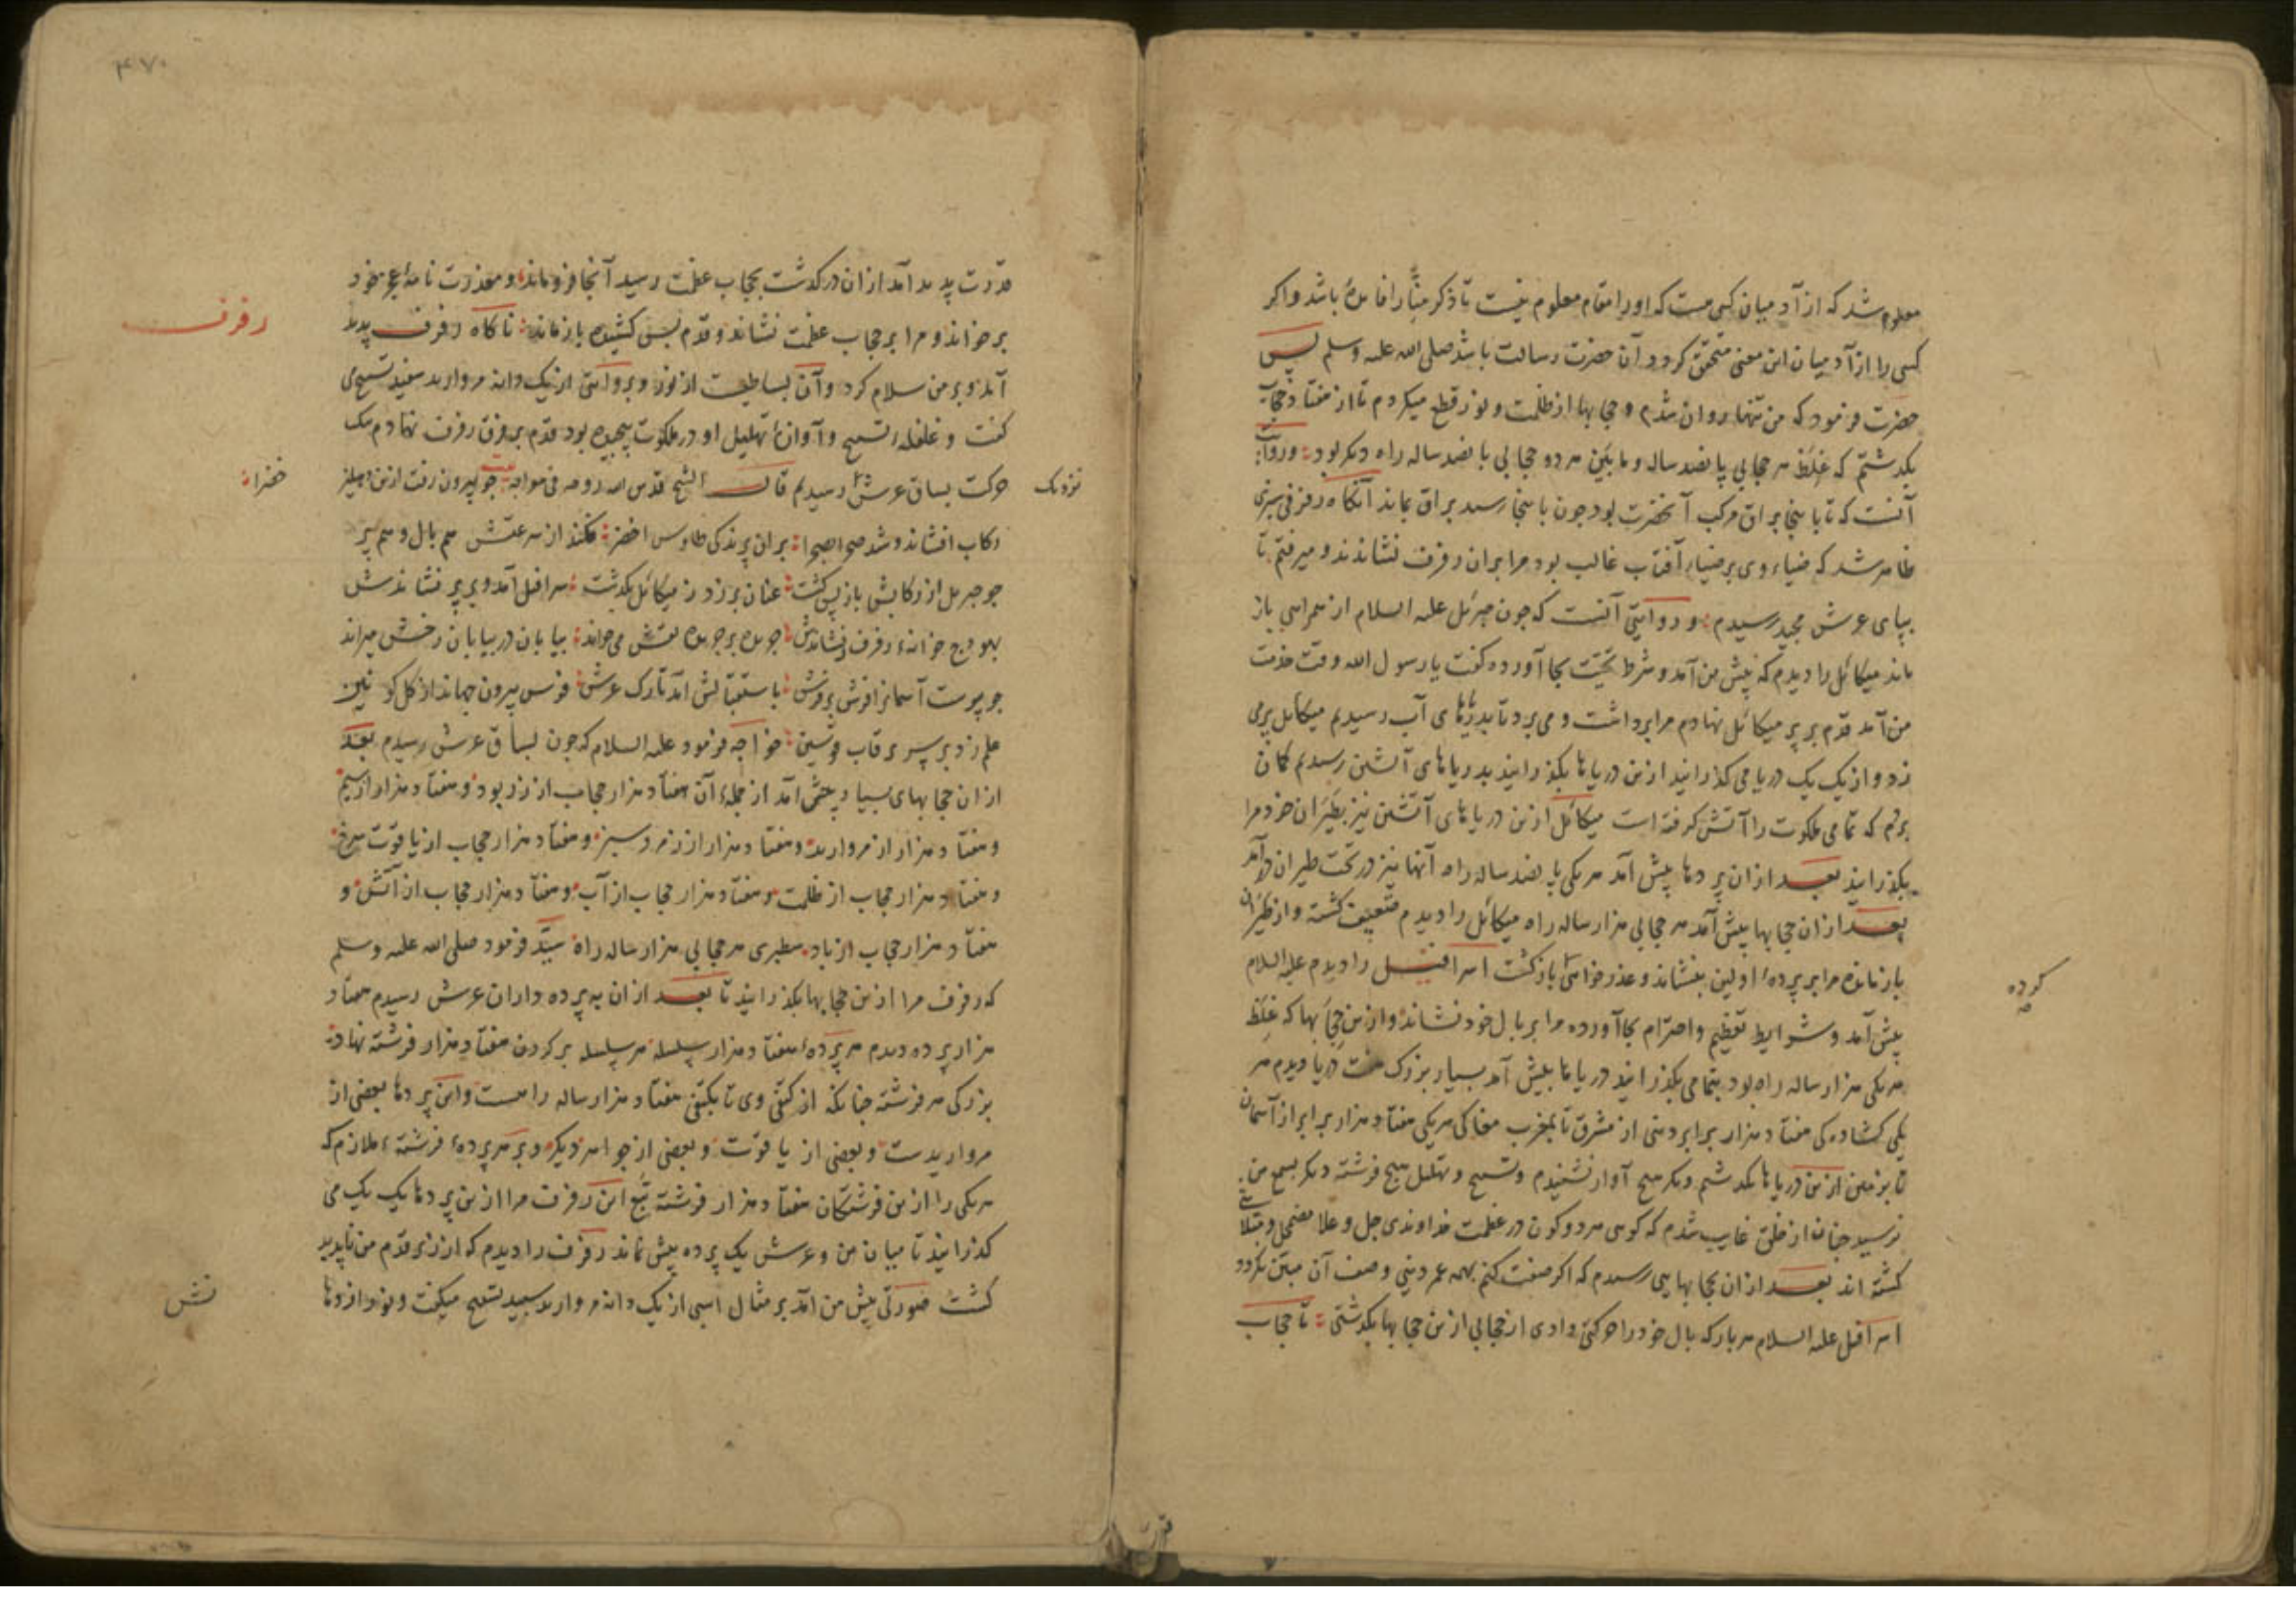 معلوم شد که از آدمیان کسی هست که او را مقام معلوم نیست تا ذکر منّا را فایدهٔ باشد و اگر
کسی را از آدمیان این معنی متحقق گردد آن حضرت رسالت باشد صلی الله علیه وسلم پس
حضرت فرمود که من تنها روان شدم و حجابها از ظلمت و نور قطع میکردم تا از هفتاد حجاب
بگذشتم که غلظ هر حجابی پانصد ساله و مابین هر دو حجابی پانصد ساله راه دیگر بود و روایت
آنست که تا باینجا براق مرکب آنحضرت بود چون باینجا رسید براق بماند آنگاه رفرفی سبزی
ظاهر شد که ضیاء وی بر ضیاء آفتاب غالب بود مرا بران رفرف نشاندند و میرفتم تا
بپای عرش مجید رسیدم و روایتی آنست که چون جبرئیل علیه السلام از همراهی باز
ماند میکائل را دیدم که پیش من آمد و شرط تحیّت بجا آورده گفت یا رسول الله وقت خدمت
من آمد قدم بر پر میکائل نهادم مرا برداشت و می برد تا بدریاهای آب رسیدیم میکائل پر می
زد و از یک یک دریا می گذرانید ازین دریاها بگذرانید بدریاهای آتشین رسیدیم گمان
بردم که تمامی ملکوت را آتش گرفته است میکائل ازین دریاهای آتشین نیز بطیران خود مرا
بگذرانید بعد ازان پردها پیش آمد هر یکی پانصد ساله راه آنها نیز در تحت طیران درآمد
بعد ازان حجابها پیش آمد هر حجابی هزار ساله راه میکائل را دیدم ضعیف گشته و از طیران
باز مانده مرا بر پردهٔ اولین بنشاند و عذرخواهی باز گشت اسرافیل را دیدم علیه السلام
کرده
پیش آمد و شرایط تعظیم و احترام بجا آورده مرا بر بال خود نشاند و ازین حجابها که غلظ
هر یکی هزار ساله راه بود بتمامی بگذرانید دریاها پیش آمد بسیار بزرگ هفت دریا دیدم هر
یکی گشادگی هفتاد هزار برابر دنیی از مشرق تا بمغرب مغاکی هر یکی هفتاد هزار برابر از آسمان
تا بزمین ازین دریاها بگذشتم دیگر هیچ آواز نشنیدم و تسبیح و تهلیل هیچ فرشته دیگر بسمع من
نرسید چنان از خلق غایب شدم که گویی هر دو کون در عظمت خداوندی جل و علا مضمحل و متلاشی
گشته اند بعد ازان بحجابهایی رسیدم که اگر صفت کنم بهمه عمر دنیی وصف آن مبین نگردد
اسرافیل علیه السلام هر بار که بال خود را حرکتی دادی از حجابی ازین حجابها بگذشتی تا حجاب
قدرت
۴۷۰
قدرت پدید آمد ازان درگذشت بحجاب عظمت رسید آنجا فروماند و معذرت نامهٔ عجز خود
بر خواند و مرا بر حجاب عظمت نشاند و قدم پس کشیده باز ماند ناگاه رفرف پدید
رفرف
آمد و بر من سلام کرد و آن بساطیست از نور و بروایتی از یک دانه مروارید سفید تسبیح می
گفت و غلغلهٔ تسبیح و آوازهٔ تهلیل او در ملکوت پیچیده بود قدم بر فرق رفرف نهادم بیک
حرکت بساق عرش رسیدم قال الشیخ قدس الله روحه چو بیرون رفت ازین دهلیز
نزدیک
خضرا
رکاب افشاند و شد صحرا بصحرا بران پرندگی طاوس اخضر فکند از سرعتش هم بال و هم پر
چو جبریل از رکابش باز پس گشت عنان برزد ز میکائل بگذشت سرافیل آمد و بر پر نشاندش
بهودج خانهٔ رفرف رساندش جریده بر جریده نقش می خواند بیابان در بیابان رخش میراند
چو پیوست آسمانرا فرش بر فرش باستقبالش آمد تارک عرش فرس بیرون جهاند از کل کونین
علم زد بر سریر قاب قوسین خواجه فرمود علیه السلام که چون بساق عرش رسیدم بعد
ازان حجابهای بسیار پیش آمد از جملهٔ آن هفتاد هزار حجاب از زر بود و هفتاد هزار از سیم
و هفتاد هزار از مروارید و هفتاد هزار از زمرد سبز و هفتاد هزار حجاب از یاقوت سرخ
و هفتاد هزار حجاب از ظلمت و هفتاد هزار حجاب از آب و هفتاد هزار حجاب از آتش و
هفتاد هزار حجاب از باد سطبری هر حجابی هزار ساله راه سید فرمود صلی الله علیه وسلم
که رفرف مرا ازین حجابها بگذرانید تا بعد ازان به پرده داران عرش رسیدم هفتاد
هزار پرده دیدم هر پردهٔ هفتاد هزار سلسله هر سلسله بر گردن هفتاد هزار فرشته نهاده
بزرگی هر فرشته چنانکه از کتفی وی تا بکتفی هفتاد هزار ساله راهست و این پردها بعضی از
مرواریدست و بعضی از یاقوت و بعضی از جواهر دیگر و بر هر پردهٔ فرشتهٔ ملازم که
هر یکی را ازین فرشتگان هفتاد هزار فرشته تبع این رفرف مرا ازین پردها یک یک می
گذرانید تا میان من و عرش یک پرده بیش نماند رفرف را دیدم که از زیر قدم من ناپدید
گشت صورتی پیش من آمد بر مثال اسبی از یک دانه مروارید سپید تسبیح میگفت و نور از دها
نش